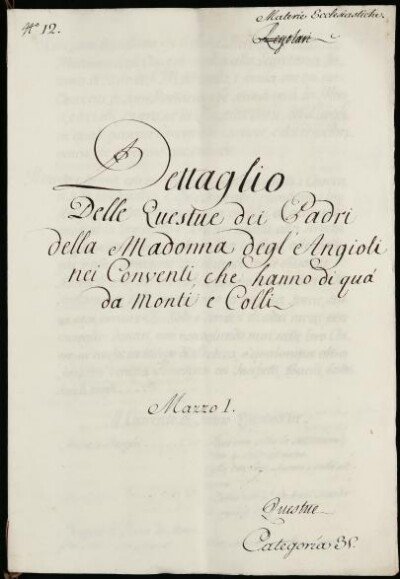 N.º 12.
Materie Ecclesiastiche.
Regolari
Dettaglio
Delle Questue dei Padri
della Madonna degl'Angioli
nei Conventi che hanno di quà
da Monti e Colli
Mazzo I.
Questue
Categoria